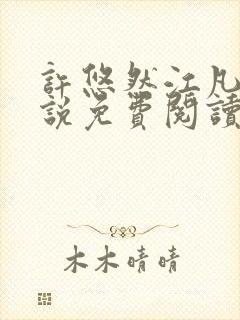 許悠然江凡
說免費閱讀
木木晴晴